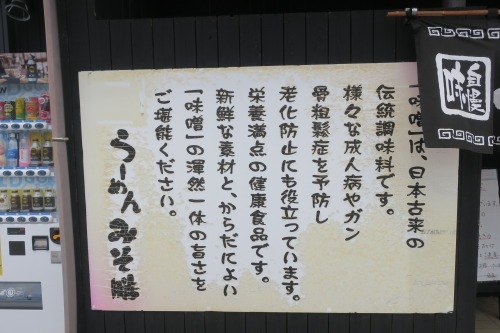 「味噌」は、日本古来の
伝統調味料です。
様々な成人病やガン
骨粗鬆症を予防し
老化防止にも役立っています。
栄養満点の健康食品です。
新鮮な素材と、からだによい
「味噌」の渾然一体の旨さを
ご堪能ください。
らーめんみそ膳
自慢
味